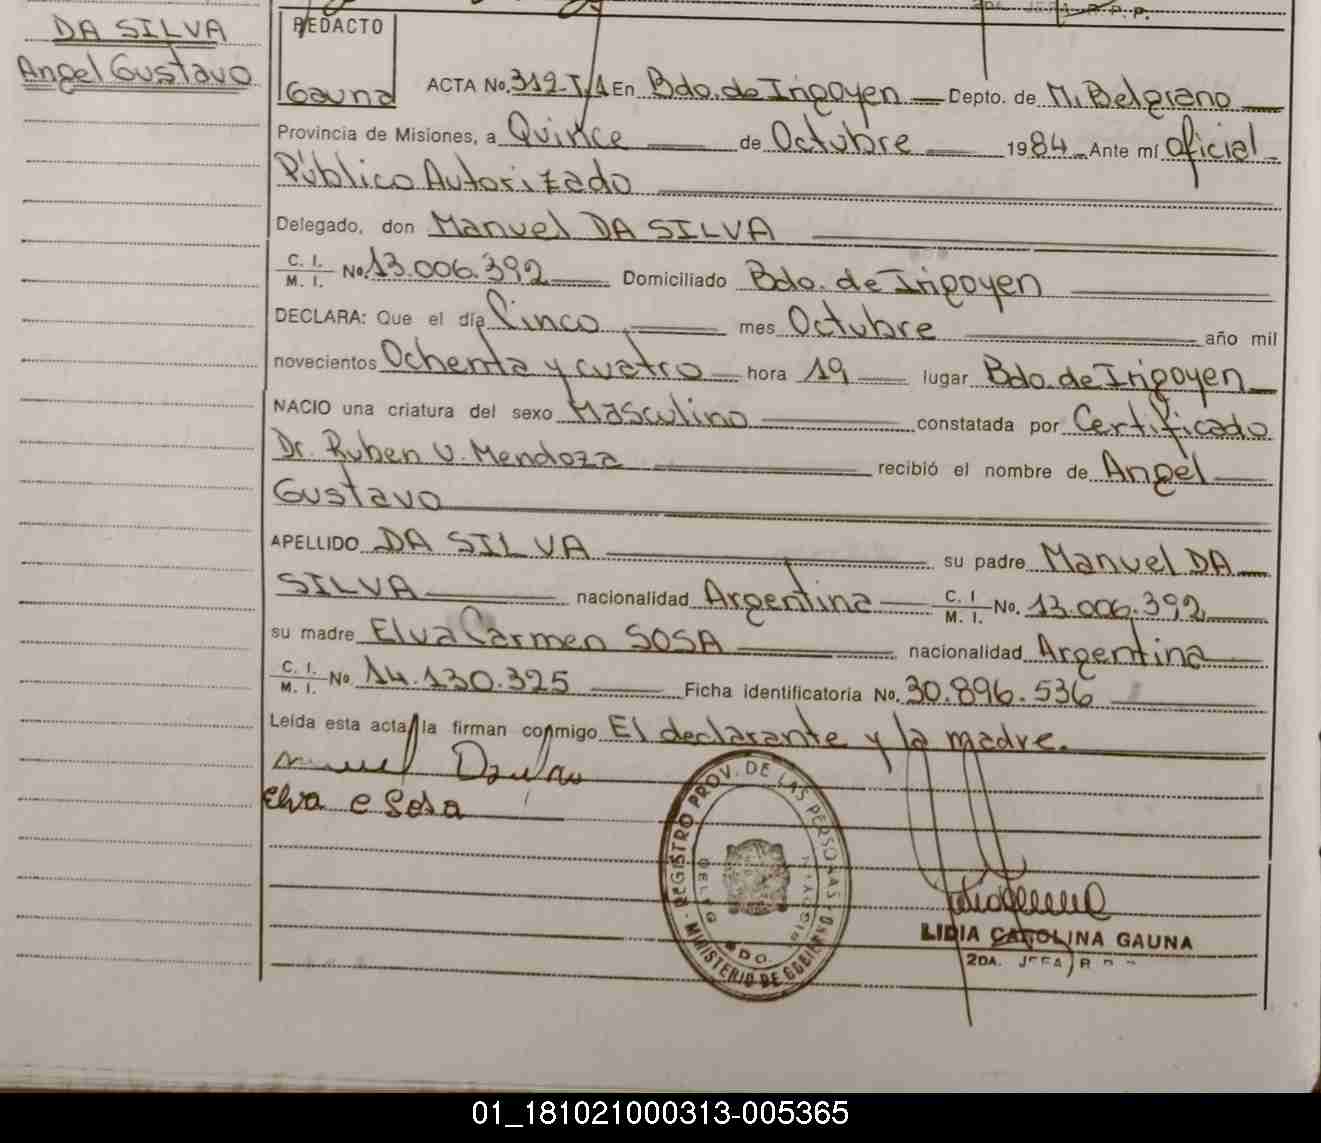 DA SILVA
Angel Gustavo
REDACTO
Gauna
ACTA No. 312-T.1 En Bdo. de Irigoyen Depto. de M. Belgrano
Provincia de Misiones, a Quince de Octubre 1984 Ante mí oficial
Público Autorizado
Delegado, don Manuel DA SILVA
C. I.
M. I. No. 13.006.392 Domiciliado Bdo. de Irigoyen
DECLARA: Que el día Cinco mes Octubre año mil
novecientos Ochenta y cuatro hora 19 lugar Bdo. de Irigoyen
NACIO una criatura del sexo Masculino constatada por Certificado
Dr. Ruben V. Mendoza recibió el nombre de Angel
Gustavo
APELLIDO DA SILVA su padre Manuel DA
SILVA nacionalidad Argentina C. I.
M. I. No. 13.006.392
su madre Elva Carmen SOSA nacionalidad Argentina
C. I.
M. I. No. 14.130.325 Ficha identificatoria No. 30.896.536
Leída esta acta la firman conmigo El declarante y la madre.
Elva e Sosa
REGISTRO PROV. DE LAS PERSONAS
MINISTERIO DE GOBIERNO
LIDIA CAROLINA GAUNA
2DA. JEFA R.
01_181021000313-005365